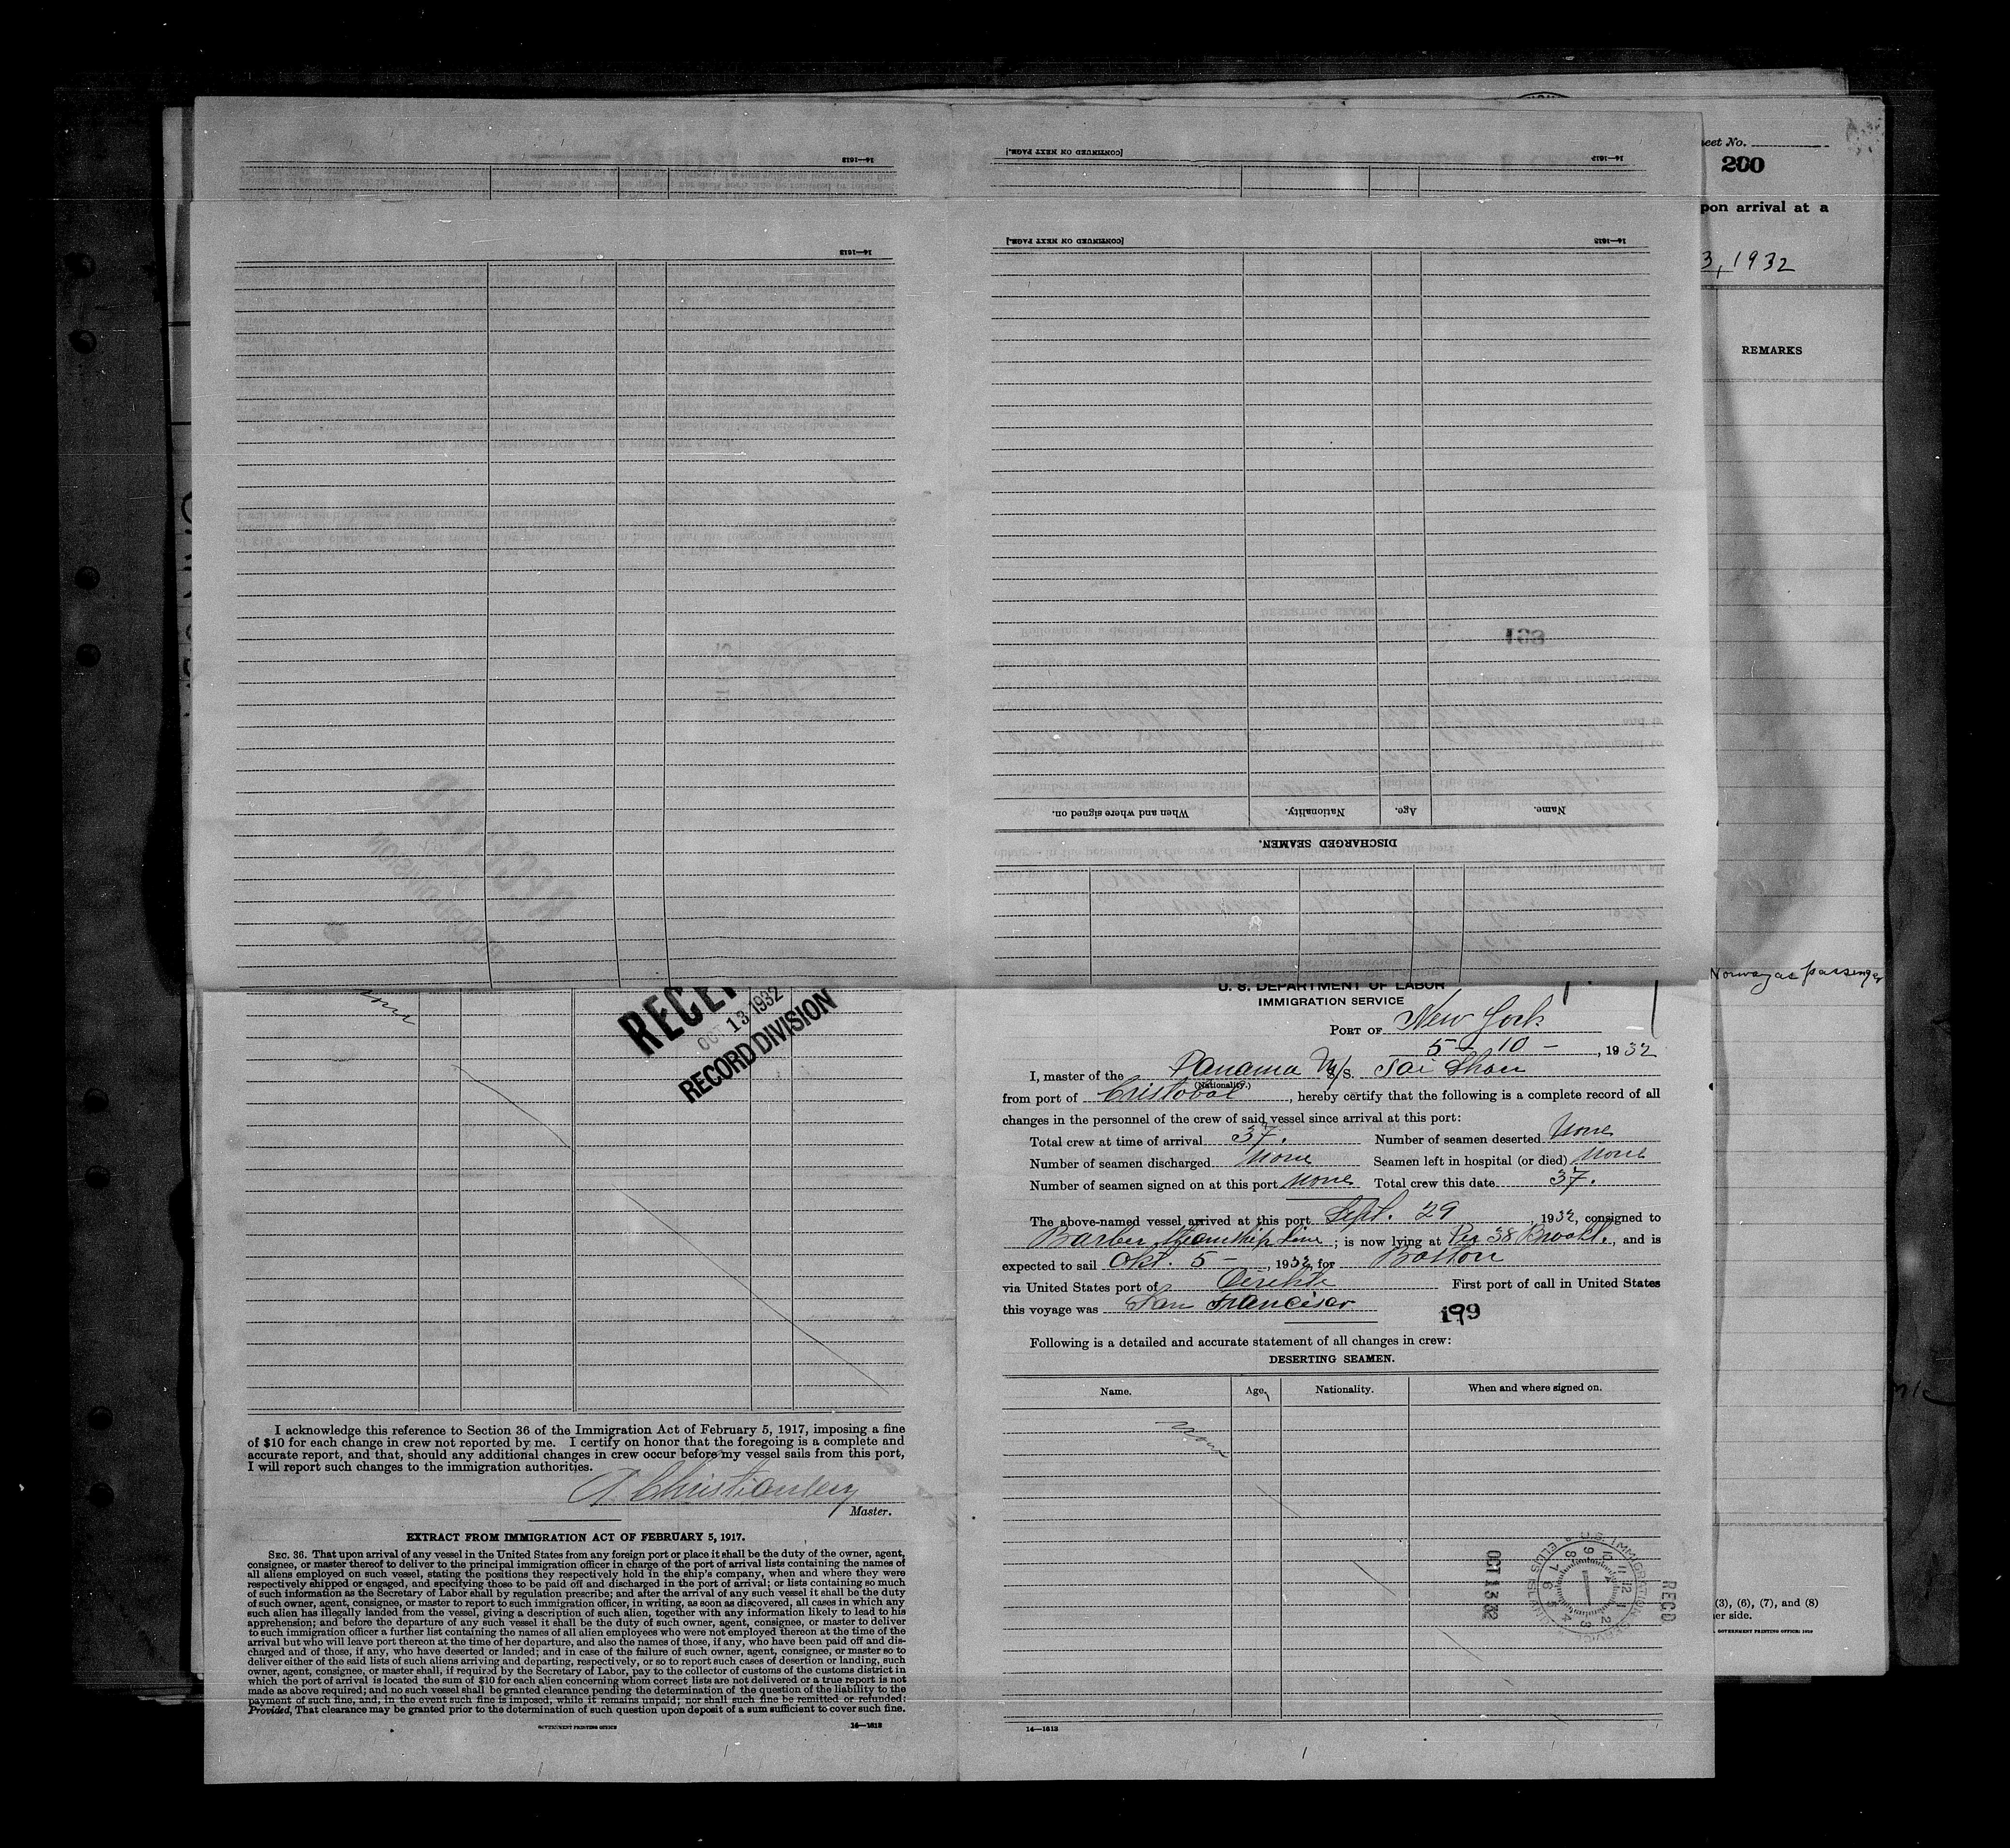 16—1612
[CONTINUED ON NEXT PAGE.]
16—1612
16—1612
[CONTINUED ON NEXT PAGE.]
16—1612
eet No.
200
pon arrival at a
3, 1932
REMARKS
168
When and where signed on.
Nationality.
Age.
Name.
DISCHARGED SEAMEN.
Norway as passenger
RECEI
OCT 13 1932
RECORD DIVISION
U. S. DEPARTMENT OF LABOR
IMMIGRATION SERVICE
PORT OF New York
5 - 10 - , 1932
I, master of the Panama M/S. Tai Shan
(Nationality.)
from port of Cristobal, hereby certify that the following is a complete record of all
changes in the personnel of the crew of said vessel since arrival at this port:
Total crew at time of arrival 37. Number of seamen deserted None
Number of seamen discharged None Seamen left in hospital (or died) None
Number of seamen signed on at this port None Total crew this date 37.
The above-named vessel arrived at this port Sept. 29 1932, consigned to
Barber Steamship Line; is now lying at Pier 38 Brookl., and is
expected to sail Okt. 5 - , 1932, for Boston
via United States port of First port of call in United States
this voyage was San Francisco
199
Following is a detailed and accurate statement of all changes in crew:
DESERTING SEAMEN.
Name. Age. Nationality. When and where signed on.
None
OCT 13 32
U.S. IMMIGRATION SERVICE
ELLIS ISLAND
REC'D
16—1612
None
I acknowledge this reference to Section 36 of the Immigration Act of February 5, 1917, imposing a fine
of $10 for each change in crew not reported by me. I certify on honor that the foregoing is a complete and
accurate report, and that, should any additional changes in crew occur before my vessel sails from this port,
I will report such changes to the immigration authorities.
Master.
EXTRACT FROM IMMIGRATION ACT OF FEBRUARY 5, 1917.
SEC. 36. That upon arrival of any vessel in the United States from any foreign port or place it shall be the duty of the owner, agent,
consignee, or master thereof to deliver to the principal immigration officer in charge of the port of arrival lists containing the names of
all aliens employed on such vessel, stating the positions they respectively hold in the ship's company, when and where they were
respectively shipped or engaged, and specifying those to be paid off and discharged in the port of arrival; or lists containing so much
of such information as the Secretary of Labor shall by regulation prescribe; and after the arrival of any such vessel it shall be the duty
of such owner, agent, consignee, or master to report to such immigration officer, in writing, as soon as discovered, all cases in which any
such alien has illegally landed from the vessel, giving a description of such alien, together with any information likely to lead to his
apprehension; and before the departure of any such vessel it shall be the duty of such owner, agent, consignee, or master to deliver
to such immigration officer a further list containing the names of all alien employees who were not employed thereon at the time of the
arrival but who will leave port thereon at the time of her departure, and also the names of those, if any, who have been paid off and dis-
charged and of those, if any, who have deserted or landed; and in case of the failure of such owner, agent, consignee, or master so to
deliver either of the said lists of such aliens arriving and departing, respectively, or so to report such cases of desertion or landing, such
owner, agent, consignee, or master shall, if required by the Secretary of Labor, pay to the collector of customs of the customs district in
which the port of arrival is located the sum of $10 for each alien concerning whom correct lists are not delivered or a true report is not
made as above required; and no such vessel shall be granted clearance pending the determination of the question of the liability to the
payment of such fine, and, in the event such fine is imposed, while it remains unpaid; nor shall such fine be remitted or refunded:
Provided, That clearance may be granted prior to the determination of such question upon deposit of a sum sufficient to cover such fine.
GOVERNMENT PRINTING OFFICE
16—1612
(3), (6), (7), and (8)
er side.
GOVERNMENT PRINTING OFFICE: 1929